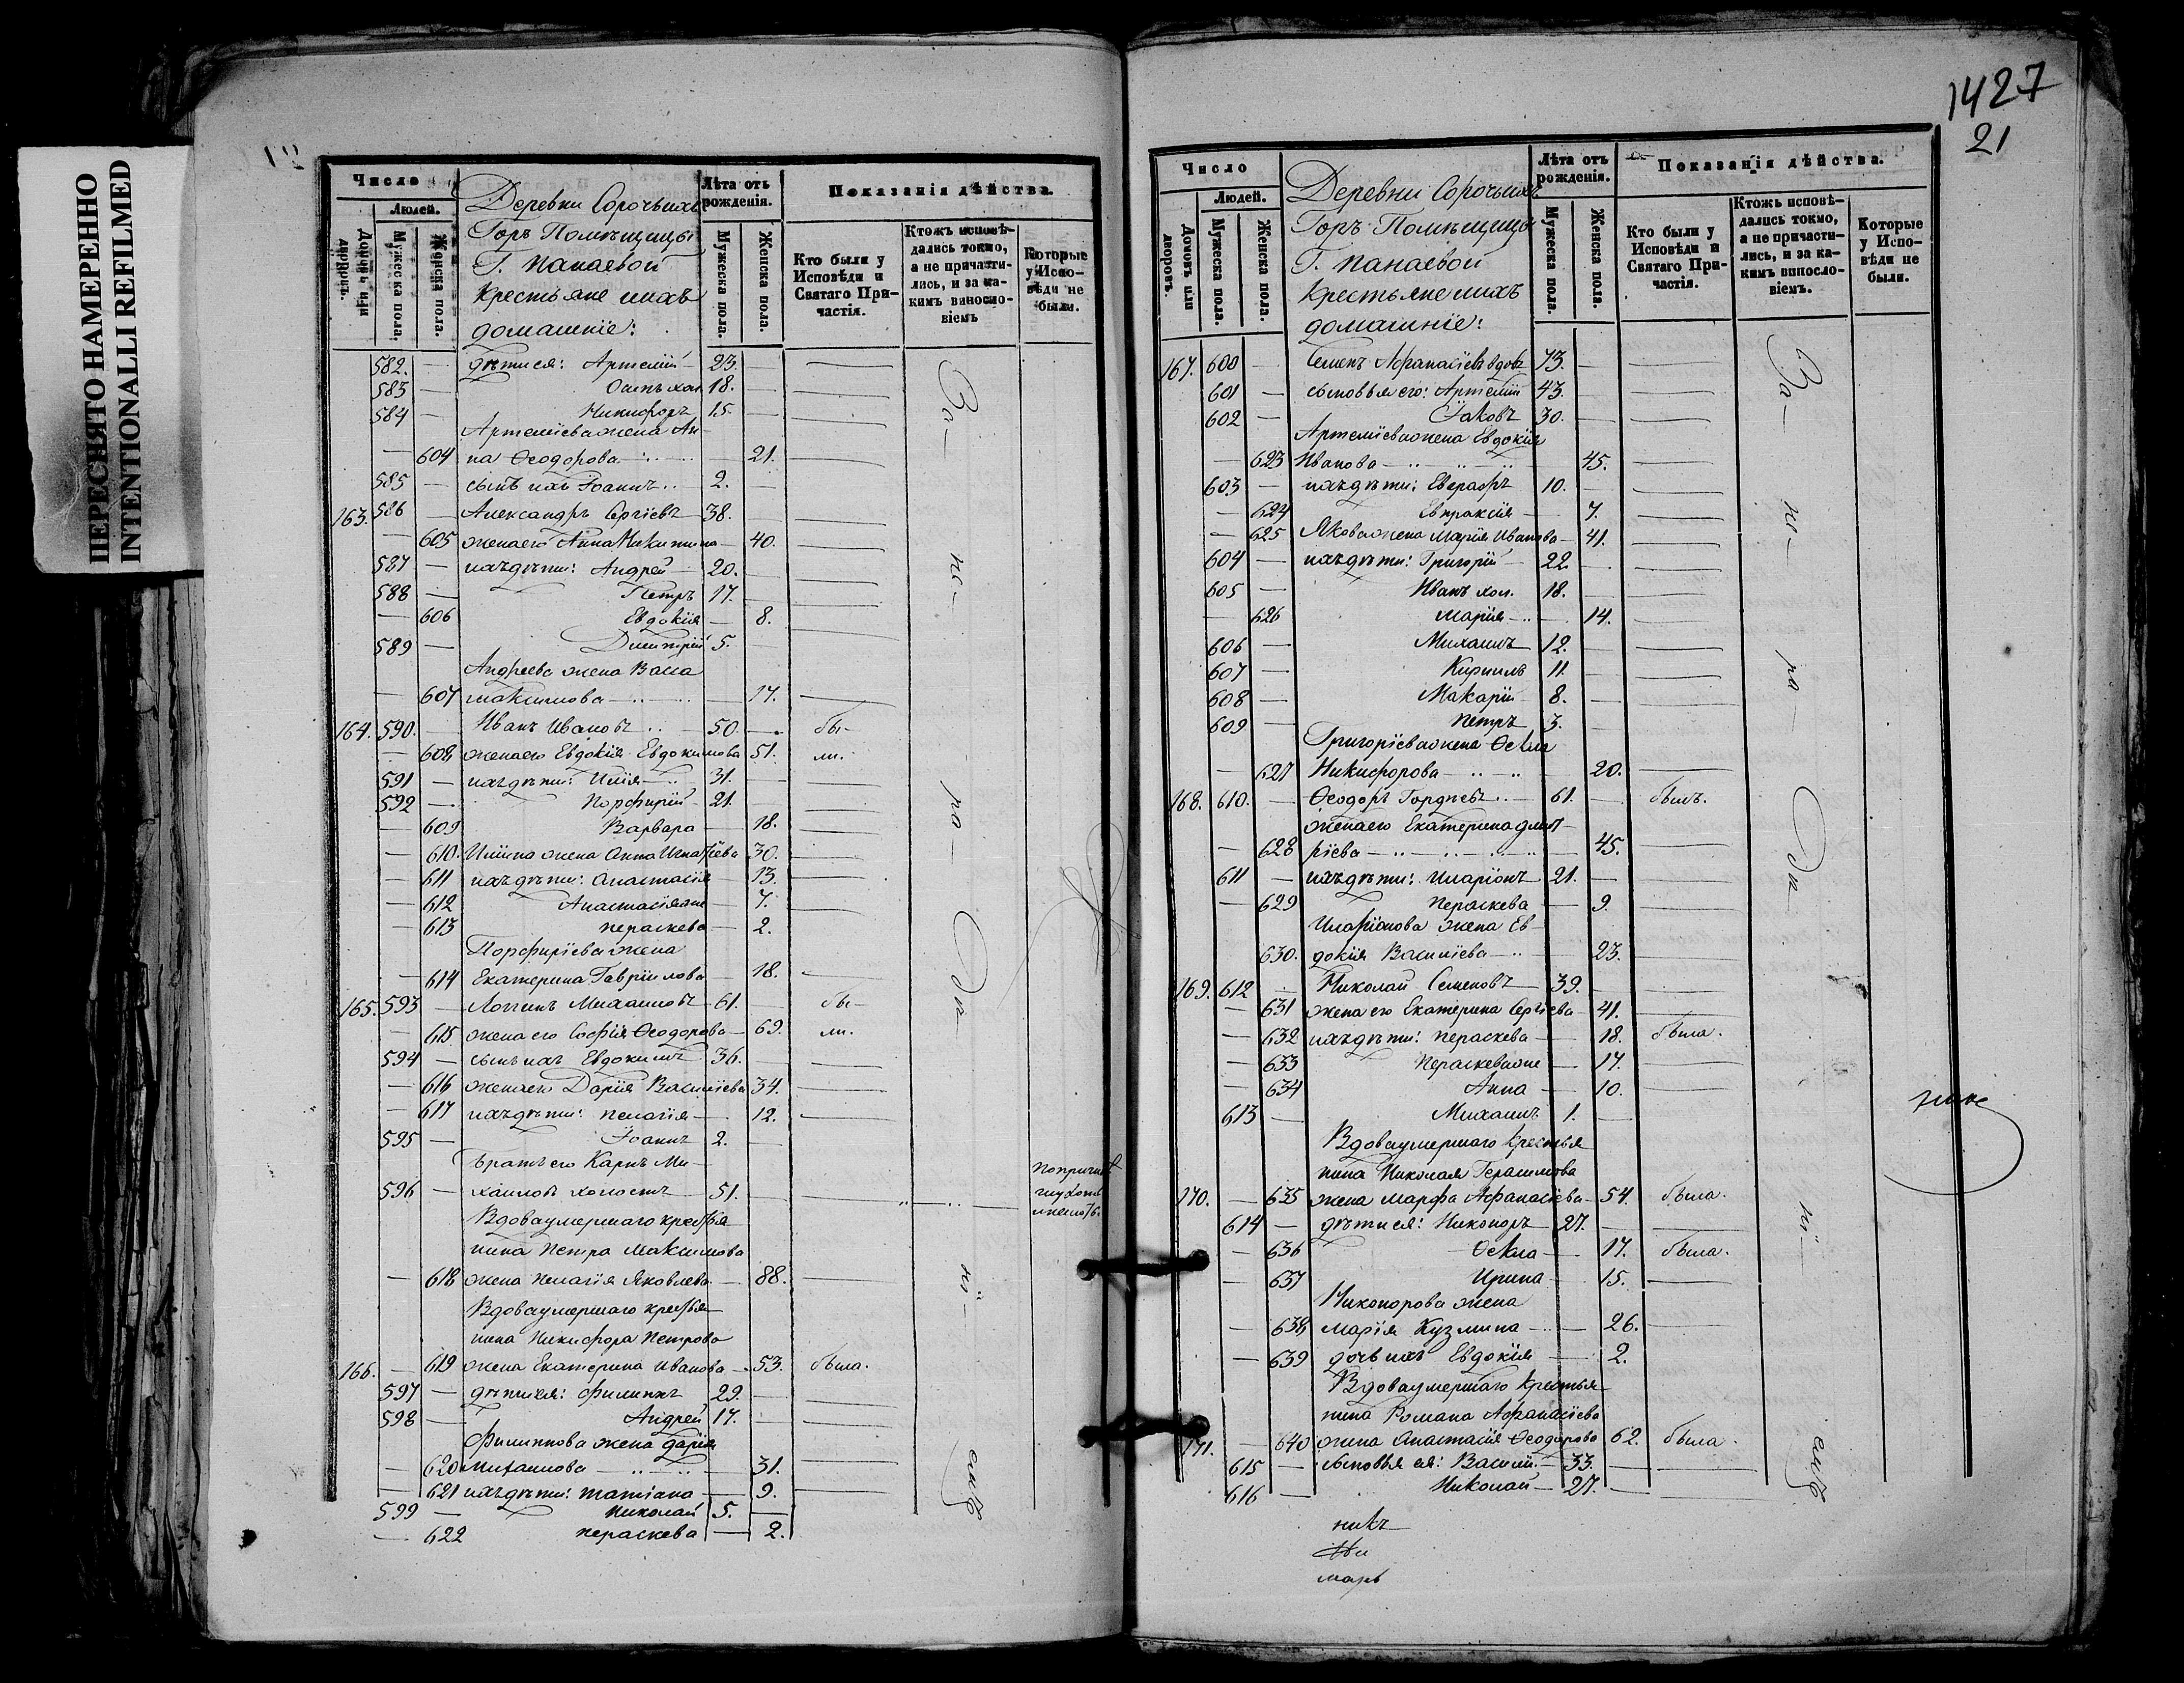 ПЕРЕСНЯТО НАМЕРЕННО
INTENTIONALLI REFILMED
Число
Людей.
Домовъ или дворовъ.
Мужеска пола.
Женска пола.
Деревни Сорочьихъ
Горъ Помѣщицы
Г. Панаевой
Крестьяне ихъ
домашніе:
Лѣта отъ рожденія.
Мужеска пола.
Женска пола.
Показанія дѣйства.
Кто были у Исповѣди и Святаго Причастія.
Ктожъ исповѣдались токмо, а не причастились, и за какимъ винословіемъ
Которые у Исповѣди не были.
582. — дѣти ея: Артемій — 23. —
583 — Осипъ хол 18. —
584 — Никифоръ 15. —
Артеміева жена Ан-
— 604 на Ѳеодорова — 21.
585 — сынъ ихъ Іоаннъ 2. —
163. 586 — Александръ Сергіевъ 38. —
— 605 жена его Анна Никитина — 40.
587 — ихъ дѣти: Андрей — 20. —
588 — Петръ 17. —
— 606 Евдокія — 8.
589 — Димитрій 5. —
Андреева жена Васса
— 607 Максимова — 17.
164. 590. — Иванъ Ивановъ 50. — бы-
— 608 жена его Евдокія Евдокимова 51. ли.
591 — ихъ дѣти: Илія — 31. —
592 — Порфирій — 21. —
— 609 Варвара — 18.
— 610. Иліина жена Анна Игнатіева 30.
— 611 ихъ дѣти: Анастасія — 13.
— 612 Анастасія же — 7.
— 613 Пераскева — 2.
Порфиріева жена
— 614 Екатерина Гавріилова — 18.
165. 593 — Логгинъ Михаиловъ 61. — бы-
— 615 жена его Софія Ѳеодорова — 69. ли.
594 — сынъ ихъ Евдокимъ 36. —
— 616 жена его Дарія Василіева 34.
— 617 ихъ дѣти: Пелагія — 12.
595 — Іоаннъ 2. —
братъ его Карпъ Ми-
596 — хаиловъ холостъ 51. —
Вдова умершаго крестья
нина Петра Максимова
— 618 жена Пелагія Яковлева — 88.
Вдова умершаго крестья
нина Никифора Петрова
166. — 619 жена Екатерина Иванова — 53. была.
597 — дѣти ея: Филиппъ 29. —
598 — Андрей 17. —
Филиппова жена Дарія
— 620 Михаилова — 31.
— 621 ихъ дѣти: Татіана — 9.
599 — Николай 5. —
— 622 Пераскева — 2.
1427
21
Число
Людей.
Домовъ или дворовъ.
Мужеска пола.
Женска пола.
Деревни Сорочьихъ
Горъ Помѣщицы
Г. Панаевой
Крестьяне ихъ
домашніе:
Лѣта отъ рожденія.
Мужеска пола.
Женска пола.
Показанія дѣйства.
Кто были у Исповѣди и Святаго Причастія.
Ктожъ исповѣдались токмо, а не причастились, и за какимъ винословіемъ.
Которые у Исповѣди не были.
167. 600 — Семенъ Афанасіевъ вдов 73. —
601 — сыновья его: Артемій 43. —
602 — Іаковъ 30. —
Артеміева жена Евдокія
— 623 Иванова — 45.
603 — ихъ дѣти: Евграфъ 10. —
— 624 Евпраксія — 7.
— 625 Якова жена Марія Иванова — 41.
604 — ихъ дѣти: Григорій — 22. —
605 — Иванъ хол. 18. —
— 626 Марія — 14.
606 — Михаилъ 12. —
607 — Кириллъ 11. —
608 — Макарій 8. —
609 — Петръ 3. —
Григоріева жена Ѳекла
— 627 Никифорова — 20.
168. 610. — Ѳеодоръ Гордѣевъ — 61. — былъ.
жена его Екатерина Дмит-
— 628 ріева — 45.
611 — ихъ дѣти: Иларіонъ 21. —
— 629 Пераскева — 9.
Иларіонова жена Ев-
— 630. докія Василіева — 23.
169. 612 — Николай Семеновъ 39. —
— 631 жена его Екатерина Сергіева — 41.
— 632 ихъ дѣти: Пераскева — 18. была.
— 633 Пераскева же — 17.
— 634 Анна — 10.
613 — Михаилъ 1. —
Вдова умершаго крестья
нина Николая Герасимова
170. — 635 жена Марфа Афанасіева — 54. была.
614 — дѣти ея: Никоноръ 27. —
— 636 Ѳекла — 17. была.
— 637 Ирина — 15.
Никонорова жена
— 638 Марія Кузмина — 26.
— 639 дочь ихъ Евдокія — 2.
Вдова умершаго крестья-
нина Романа Афанасіева
171. — 640 жена Анастасія Ѳеодорова 62. была.
615 — сыновья ея: Василій — 33. —
616 — Николай — 27. —
никъ